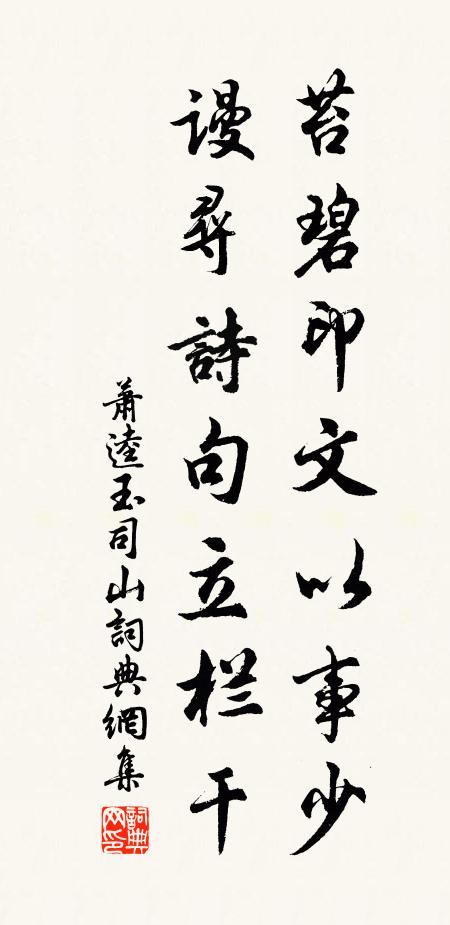 苔碧印文以事少
谩寻詩句立栏干
萧逵玉司山詞典網集
詞典
网印